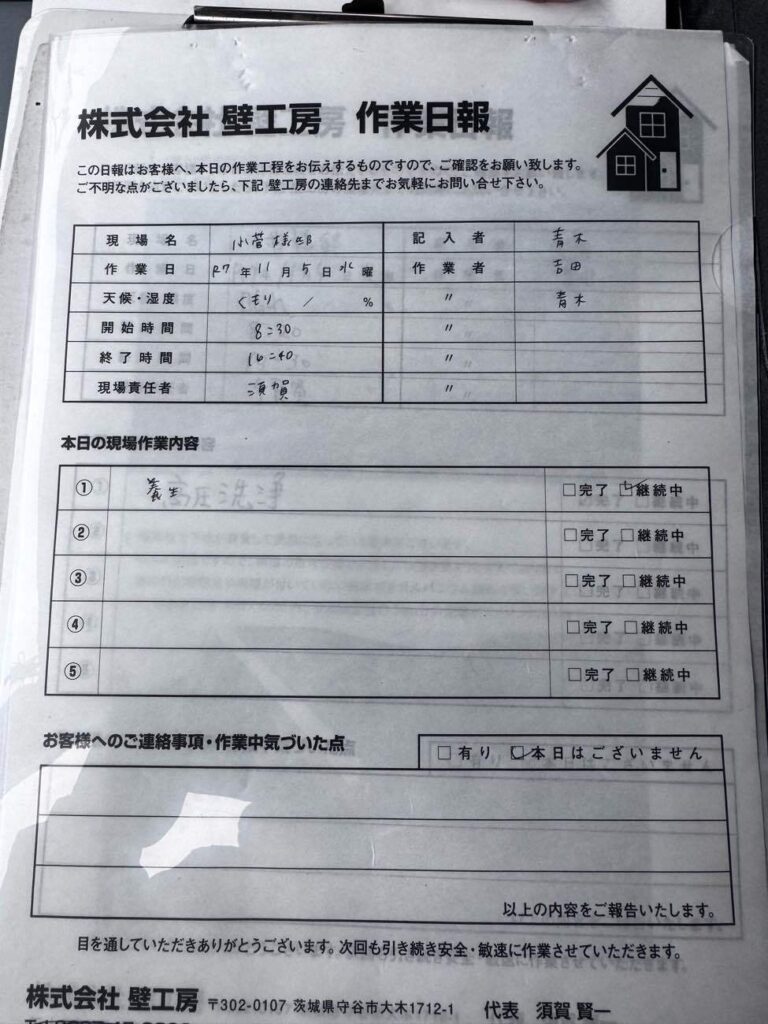 株式会社 壁工房 作業日報
この日報はお客様へ、本日の作業工程をお伝えするものですので、ご確認をお願い致します。
ご不明な点がございましたら、下記 壁工房の連絡先までお気軽にお問い合せ下さい。
現場名 小菅様邸 記入者 青木
作業日 R7年11月5日水曜 作業者 吉田
天候・湿度 くもり / % 〃 青木
開始時間 8:30 〃
終了時間 16:40 〃
現場責任者 須賀 〃
本日の現場作業内容
① 養生 □完了 ☑継続中
② □完了 □継続中
③ □完了 □継続中
④ □完了 □継続中
⑤ □完了 □継続中
お客様へのご連絡事項・作業中気づいた点 □有り ☑本日はございません
以上の内容をご報告いたします。
目を通していただきありがとうございます。次回も引き続き安全・敏速に作業させていただきます。
株式会社 壁工房 〒302-0107 茨城県守谷市大木1712-1 代表 須賀 賢一